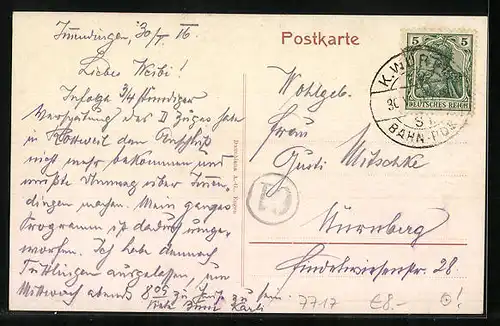 Immendingen, 30/I 16.
Liebes Weibi!
Infolge 3/4 stündiger
Verspätung des D Zuges habe
in Rottweil den Anschluß
nicht mehr bekommen und
mußte Umweg über Immen-
dingen machen. Mein ganzes
Programm ist dadurch umge-
worfen. Ich habe dennoch
Tuttlingen ausgelassen, um
Mittwoch abends 8 09 zu Haus zu sein.
Postkarte
5 5
DEUTSCHES REICH
K. WÜRTT.
30
BAHN-POST
Wohlgeb.
Frau
Gusti Mitschke
Nürnberg
Findelwiesenstr. 28
7717 €8.-